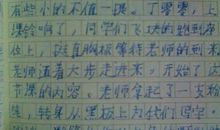 有些小的不值一提。丁零零,上
课铃响了,同学们飞快的跑到座
位上,挺直胸板等待老师的到来
老师迈着大步走进来,开始了这
节课的内容。老师拿起了一支粉
笔,转身从黑板上为我们写字